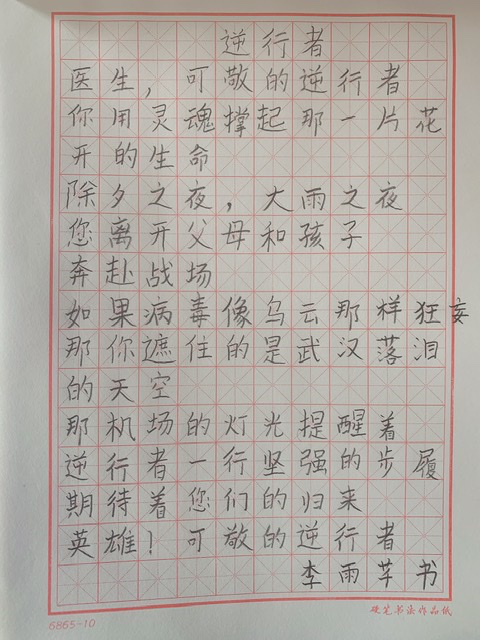 逆行者
医生，可敬的逆行者
你用灵魂撑起那一片花
开的生命
除夕之夜，大雨之夜
您离开父母和孩子
奔赴战场
如果病毒像乌云那样狂妄
那你遮住的是武汉落泪
的天空
那机场的灯光提醒着
逆行者一行坚强的步履
期待着您们的归来
英雄！可敬的逆行者
李雨芊书
硬笔书法作品纸
6865-10